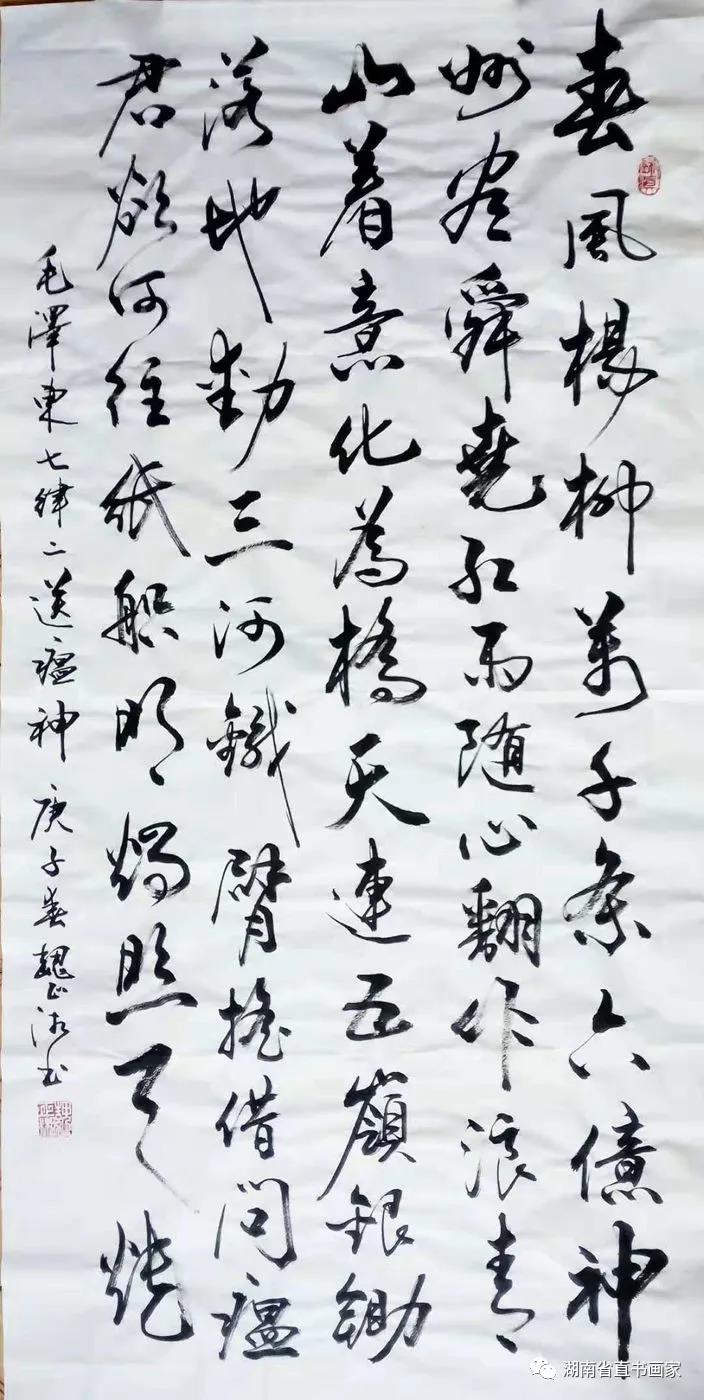 春風楊柳萬千条六億神
州尽舜堯红雨随心翻作浪青〻
山着意化為橋天連五嶺銀锄
落地動三河鐵臂摇借問瘟
君欲何往纸船明〻燭照天烧
毛澤東七律二送瘟神 庚子春魏湘书
湖南省直书画家